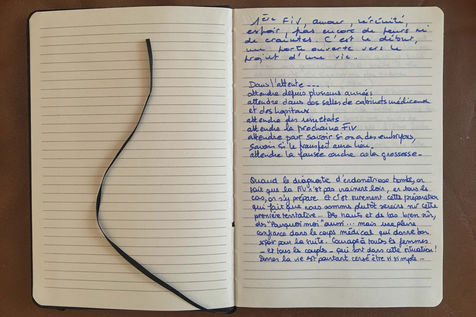 1ère FIV, amour, sérénité,
espoir, pas encore de peurs ni
de craintes. C'est le début,
une porte ouverte vers le
projet d'une vie.
Dans l'attente ...
attendre depuis plusieurs années
attendre dans des salles de cabinets médicaux
et des hopitaux
attendre des résultats
attendre la prochaine FIV
attendre pour savoir si on a des embryons,
savoir si le transfert aura lieu.
attendre la fausse couche ou la grossesse.
Quand le diagnostic d'endométriose tombe, on
sait que la FIV n'est pas vraiment loin, en tous les
cas, on s'y prépare. Et c'est surement cette préparation
qui fait que nous sommes plutôt sereins sur cette
première tentative. Des hauts et des bas bien sûr,
des "Pourquoi moi" aussi... mais une pleine
confiance dans le corps médical qui donne bon
espoir pour la suite. Courage à toutes les femmes
- et tous les couples - qui sont dans cette situation !
Donner la vie est pourtant censé être si simple...